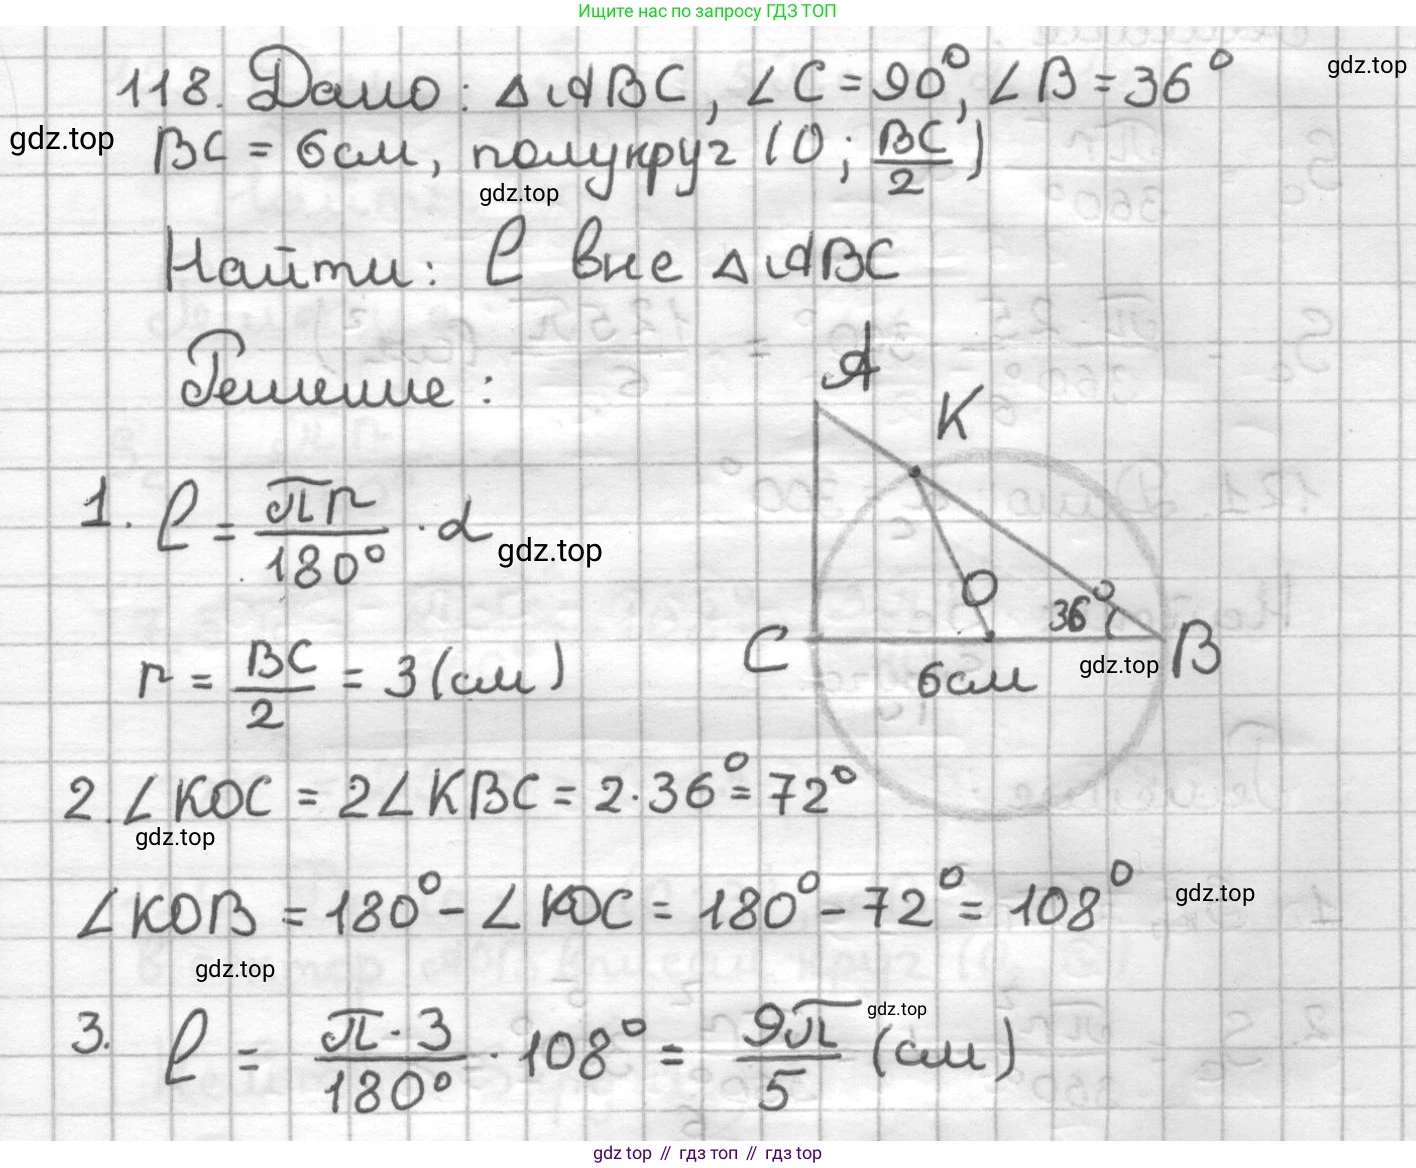 Ищите нас по запросу ГДЗ ТОП
118. Дано: △ABC, ∠C = 90°, ∠B = 36°
gdz.top
gdz.top
BC = 6см, полукруг (O; BC/2)
gdz.top
Найти: l вне △ABC
Решение:
A
K
1. l = πr/180° · α
gdz.top
O
36°
C
B
6см
gdz.top
r = BC/2 = 3 (см)
2. ∠KOC = 2∠KBC = 2·36° = 72°
gdz.top
∠KOB = 180° - ∠KOC = 180° - 72° = 108°
gdz.top
gdz.top
3. l = π·3/180° · 108° = 9π/5 (см)
gdz.top
gdz топ // гдз топ // gdz top